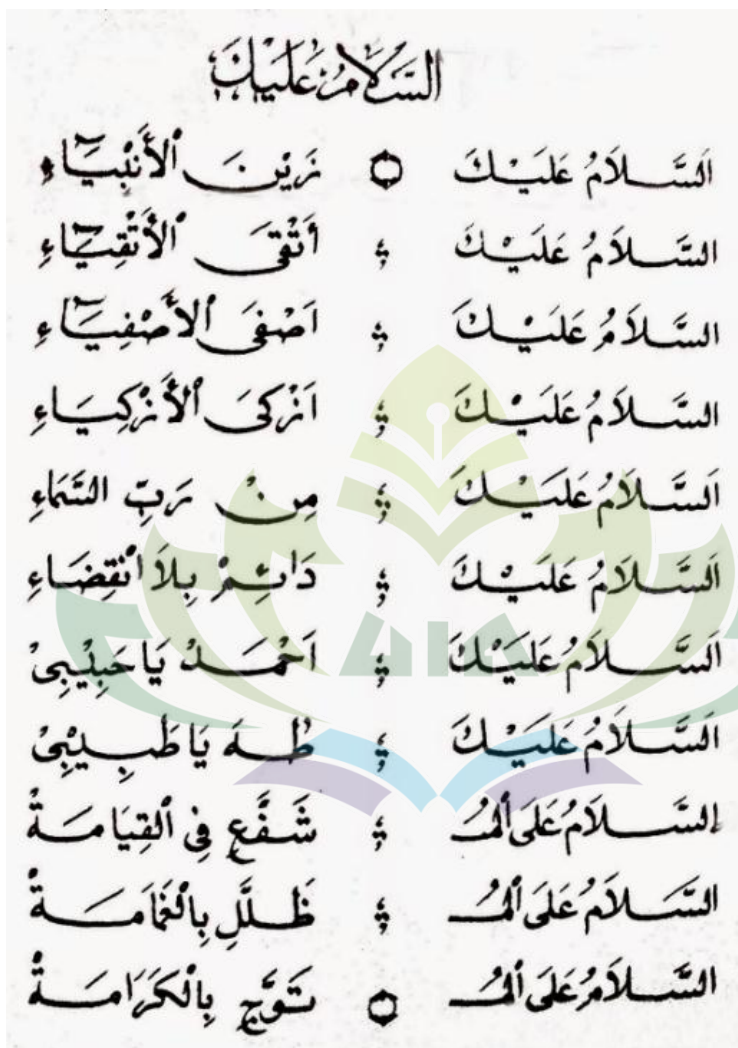 السَّلَامُ عَلَيْكَ
اَلسَّلاَمُ عَلَيْكَ ۞ زَيْنَ ٱلْأَنْبِيَآءِ
اَلسَّلاَمُ عَلَيْكَ ؛ أَتْقَى ٱلْأَتْقِيَآءِ
اَلسَّلاَمُ عَلَيْكَ ؛ اَصْفَى ٱلْأَصْفِيَآءِ
اَلسَّلاَمُ عَلَيْكَ ؛ اَزْكَى ٱلْأَزْكِيَاءِ
اَلسَّلاَمُ عَلَيْكَ ؛ مِنْ رَبِّ السَّمَاءِ
اَلسَّلاَمُ عَلَيْكَ ؛ دَائِمْ بِلاَ انْقِضَاءِ
اَلسَّلاَمُ عَلَيْكَ ؛ اَحْمَدْ يَا حَبِيْبِىْ
اَلسَّلاَمُ عَلَيْكَ ؛ طٰهَ يَا طَبِيْبِىْ
اَلسَّلاَمُ عَلَى ٱلْمُـ ؛ شَفَّعِ فِي ٱلْقِيَامَةْ
اَلسَّلاَمُ عَلَى ٱلْمُـ ؛ ظَلَّلِ بِالْغَمَامَةْ
اَلسَّلاَمُ عَلَى ٱلْمُـ ۞ تَوَّجِ بِالْكَرَامَةْ